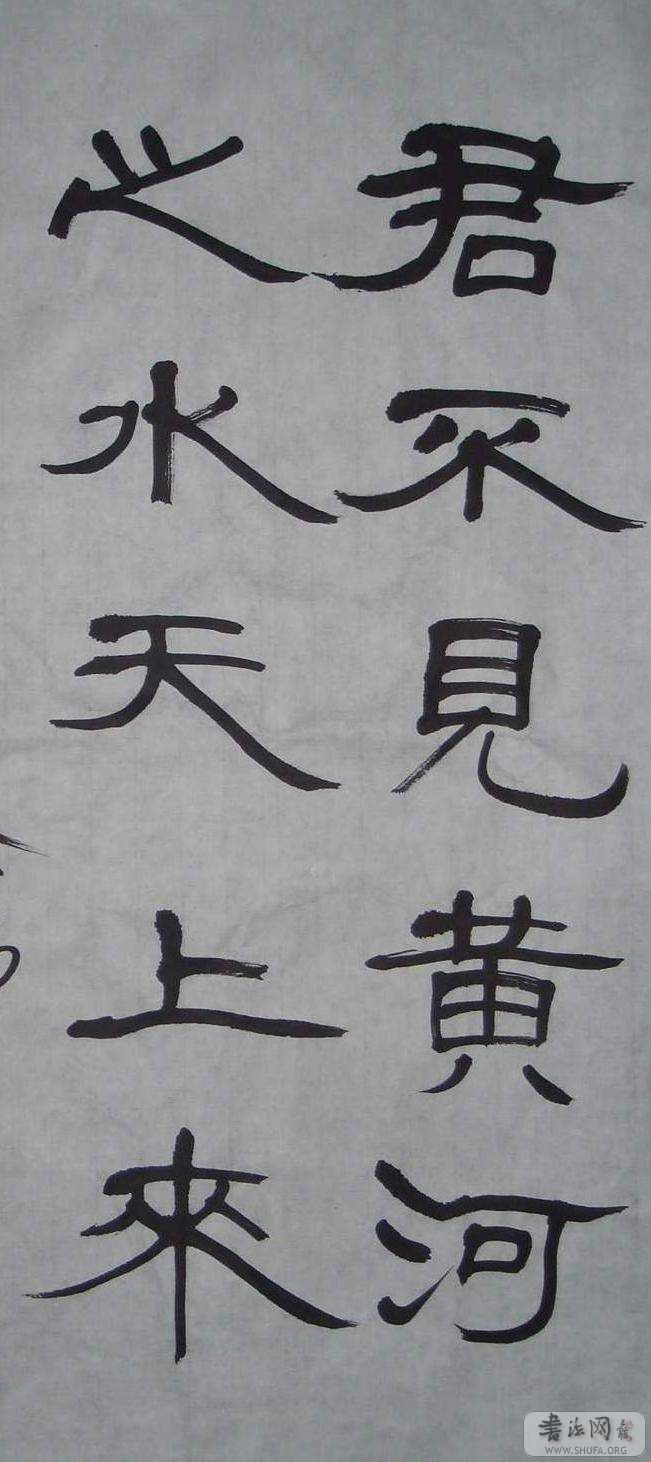 君不見黃河
之水天上來
书法网
WWW.SHUFA.ORG